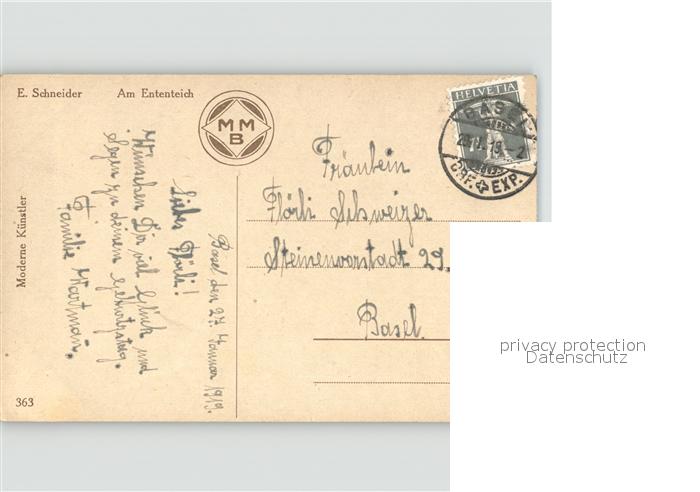 E. Schneider Am Ententeich
MM
B
HELVETIA
BASEL
2
BRF. EXP.
Moderne Künstler
363
Basel den 27. Januar 1919.
Liebes Flörli!
Wünschen Dir viel Glück und
Segen zu deinem Geburtstag.
Familie Hartmann.
Fräulein
Flörli Schweizer
Steinenvorstadt 29.
Basel.
privacy protection
Datenschutz